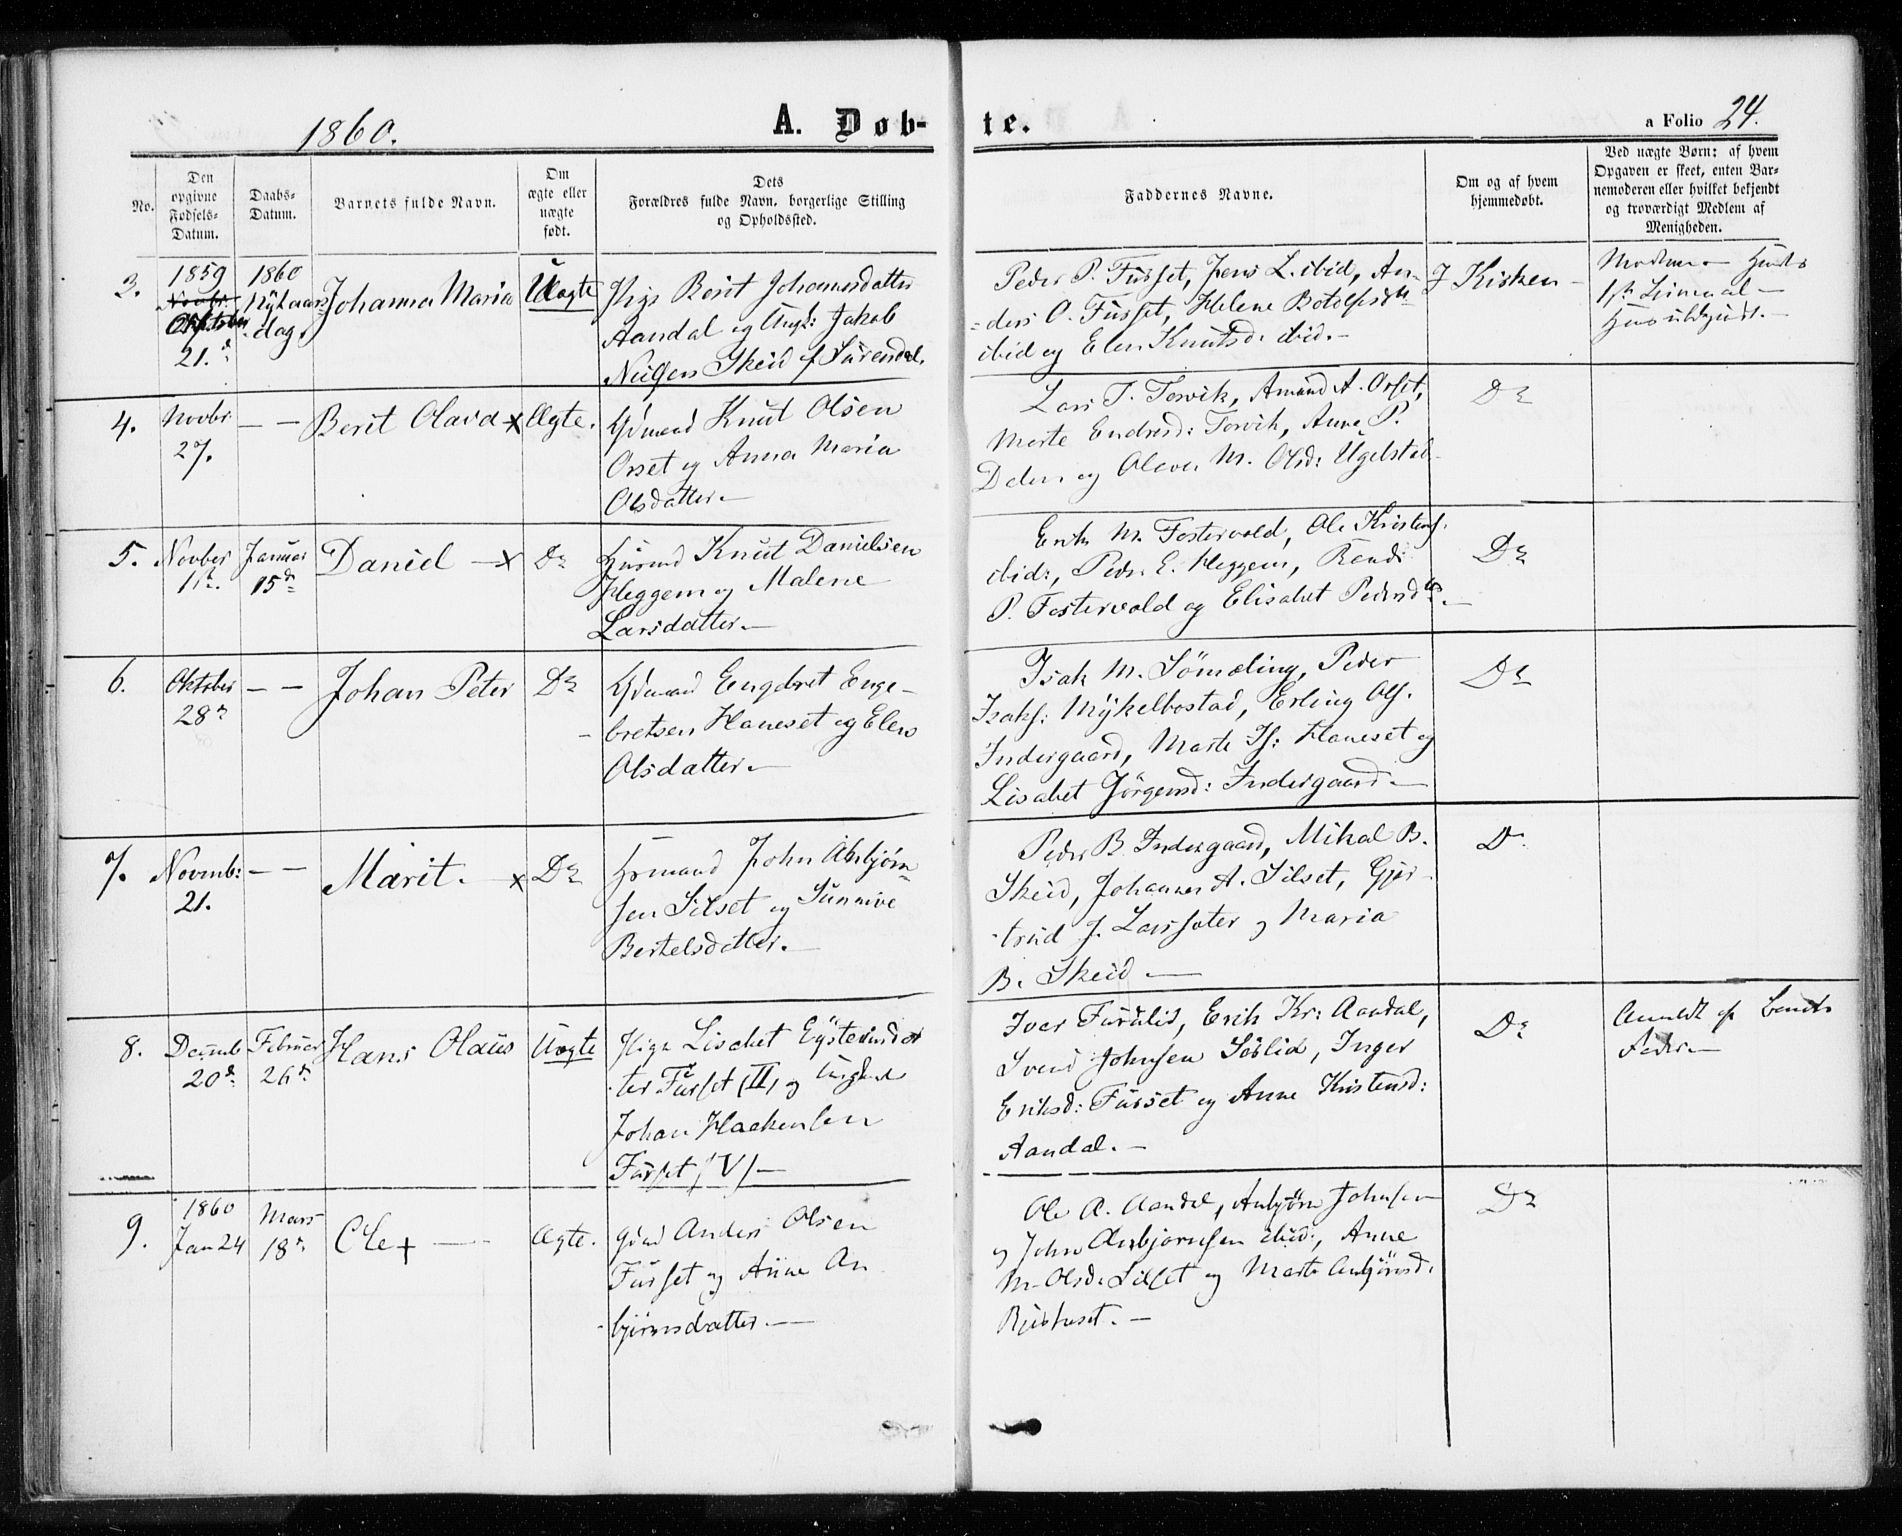 1860.
A. Døb-
te.
a Folio 24.
No.
Den
opgivne
Fødsels-
Datum.
Daabs-
Datum.
Barnets fulde Navn.
Om
ægte eller
uægte
født.
Dets
Forældres fulde Navn, borgerlige Stilling
og Opholdssted.
Faddernes Navne.
Om og af hvem
hjemmedøbt.
Ved uægte Børn: af hvem
Opgaven er skeet, enten Bar-
nemoderen eller hvilket bekjendt
og troværdigt Medlem af
Menigheden.
3.
1859
Novbr.
Oktober
21.d
1860
Nytaars
dag.
Johanna Maria
Uægte
Pige Berit Johannesdatter
Aandal og Ungk: Jakob
Nilsen Skeid f Surendal.
Peder P. Furset, Jens L. ibid, An-
ders O. Furset, Helene Botolfsdtt
ibid og Elen Knutsd: ibid.-
I Kirken -
4.
Novbr
27.
- -
Berit Olava x
Ægte.
Gdmand Knut Olsen
Orset og Anna Maria
Olsdatter.-
Lars T. Torvik, Amund A. Orset,
Marte Endresd: Torvik, Anne P.
Dalen og M. Olsd: Ugelstad
Do
5.
Novber
11te.
Januar
15de
Daniel - x
Do
Husmd Knut Danielsen
Heggem og Malene
Larsdatter.-
Erik M. Fostervold, Ole Kristens.
ibid:, Peder E. Heggem, Randi
P. Fostervold og Elisabet Pedersdtt.-
Do
6.
Oktober
28de
- -
Johan Peter
Do
Gdmand Engebret Enge-
bretsen Haneset og Elen
Olsdatter.-
Isak M. Sömæling, Peder
Isaks: Mykelbostad, Erling Ols.
Indergaard, Marte Is: Haneset og
Lisabet Jörgensd: Indergaard.-
Do
7.
Novemb:
21.
- -
Marit. - x
Do
Husmand John Asbjörn-
sen Silset og Sunnive
Bertelsdatter.-
Peder B. Indergaard, Mikal B.
Skeid, Johannes A. Silset, Gjer-
trud J. Larssæter og Maria
B. Skeid -
Do
8.
Decemb
20de
Februar
26de
Hans Olaus
Uægte
Pige Lisabet Eystensdat
ter Furset (II) og Ungkarl
Johan Haakensen
Furset (V) -
Iver Furulid, Erik Kr: Aandal,
Svend Johnsen Söblid, Inger
Eriksd: Furset og Anne Kristensd:
Aandal.-
Do
Anmeldt af Barnets
Fader.-
9.
1860
Jan 24
Mars
18de
Ole +
Ægte.
Gdmd Anders Olsen
Furset og Anne An
björnsdatter.-
Ole A. Aandal, Anbjörn Johnsen
og John Asbjörnsen ibid:, Anne
M. Olsd. Silset og Marte Anbjörnsd.
Do